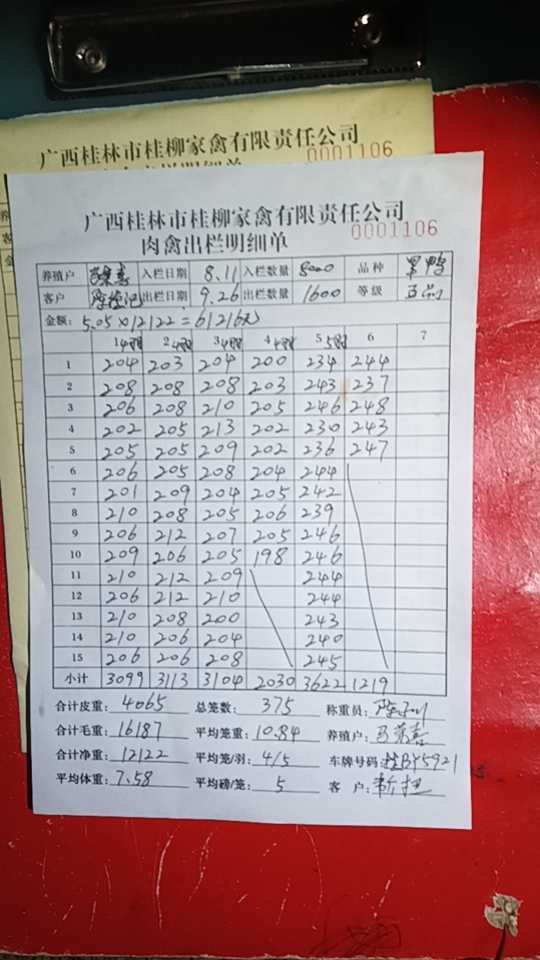 广西桂林市桂柳家禽有限责任公司
0001106
广西桂林市桂柳家禽有限责任公司
肉禽出栏明细单 0001106
养殖户 入栏日期 8.11 入栏数量 8000 品种
客户 出栏日期 9.26 出栏数量 1600 等级
金额: 5.05×12122=61216元
1 2 3 4 5 6 7
1 204 203 204 200 234 244
2 208 208 208 203 243 237
3 206 208 210 205 246 248
4 202 205 213 202 230 243
5 205 205 209 202 236 247
6 206 205 208 204 244
7 201 209 204 205 242
8 210 208 205 206 239
9 206 212 207 205 246
10 209 206 205 198 246
11 210 212 209 244
12 206 212 210 244
13 210 208 200 243
14 210 206 204 240
15 206 206 208 245
小计 3099 3113 3104 2030 3622 1219
合计皮重: 4065 总笼数: 375 称重员:
合计毛重: 16187 平均笼重: 10.84 养殖户:
合计净重: 12122 平均笼/羽: 4/5 车牌号码: 桂BY5921
平均体重: 7.58 平均磅/笼: 5 客 户: